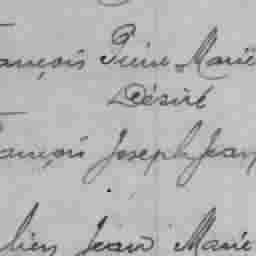 ançois Pierre Marie
Désiré
ançois Joseph Jean
lien Jean Marie